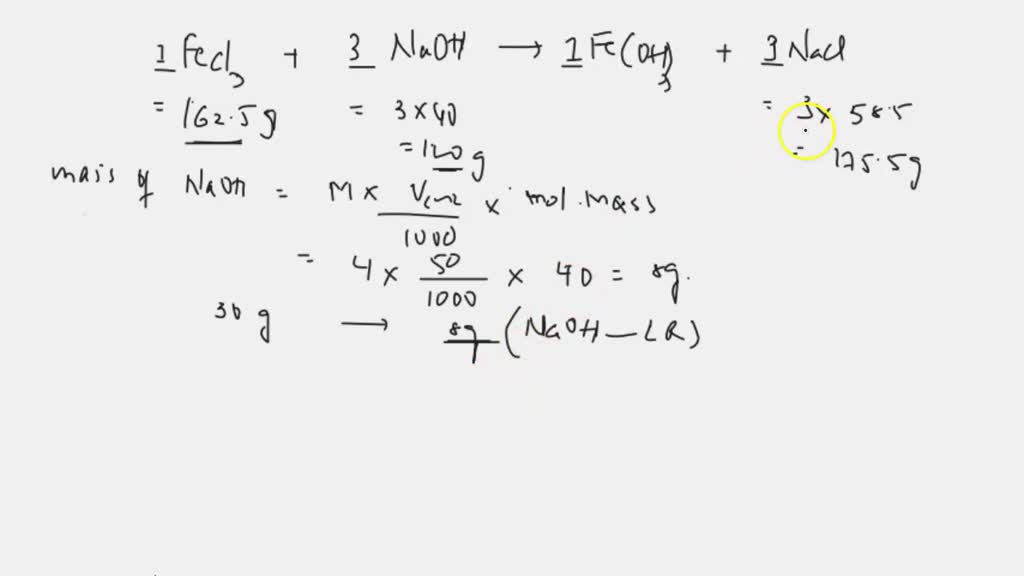 1 FeCl3 + 3 NaOH → 1 Fe(OH)3 + 3 NaCl
= 162.5 g = 3 x 40 = 3 x 58.5
= 120 g = 175.5 g
mass of NaOH = M x Vcm3 / 1000 x mol. Mass
= 4 x 50 / 1000 x 40 = 8g.
30 g → 8g (NaOH - LR)